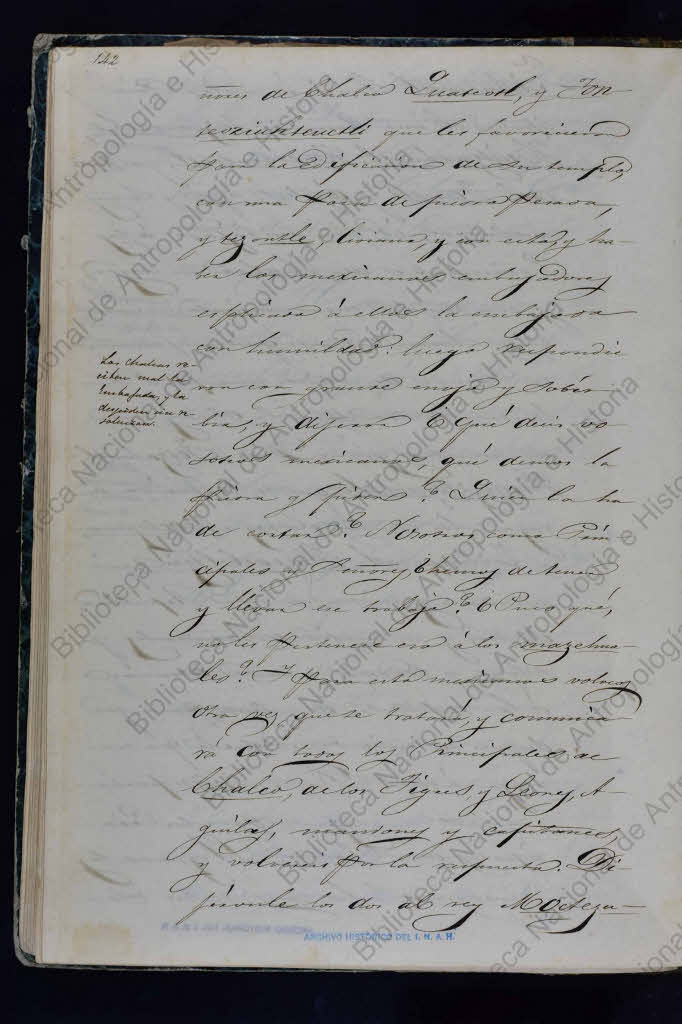 142
ñores de Chalco Quateotl, y Ton-
teoziuhteuctli que les favoreciesen
para la Edificacion de su templo,
con una poca de piedra pesada,
y tezontle, liviana, y con esto, y ha-
ber los mexicanos embajadores
esplicado á ellos la embajada
con humildad: luego respondie
ron con grande enojo y sober
bia, y dijeron ¿Qué decis vo
sotros mexicanos, qué demos la
piedra q'e piden? Quién la ha
de cortar? Nosotros como Prin
cipales y Señores, hemos de tener
y llevar ese trabajo? ¿Pues qué,
no les pertenece eso á los mazehua-
les? Y para esta mexicanos volved
otra vez que se tratará, y comunica
rá con todos los Principales de
Chalco, de los Tigres, y Leones, A-
guilas, mandones y capitanes,
y volveréis por la respuesta. Di-
jéronle los dos al rey Moctezu-
Los Chalcas re
ciben mal la
Embajada, y la
despiden sin re
solucion.
ARCHIVO HISTORICO DEL I. N. A. H.
Biblioteca Nacional de Antropología e Historia